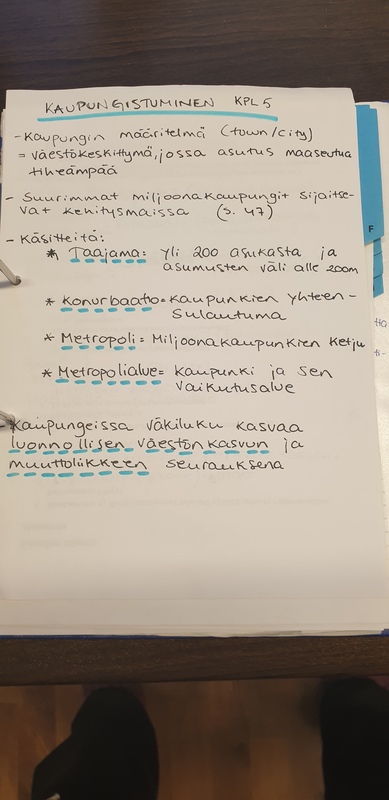 KAUPUNGISTUMINEN KPL 5
- Kaupungin määritelmä (town/city)
= väestökeskittymä, jossa asutus maaseutua
tiheämpää
- Suurimmat miljoonakaupungit sijaitse-
vat kehitysmaissa (s. 47)
- Käsitteitä:
* Taajama: Yli 200 asukasta ja
asumusten väli alle 200m
* Konurbaatio = kaupunkien yhteen-
sulautuma
* Metropoli = Miljoonakaupunkien ketju
* Metropolialue = kaupunki ja sen
vaikutusalue
Kaupungeissa väkiluku kasvaa
luonnollisen väestönkasvun ja
muuttoliikkeen seurauksena
F